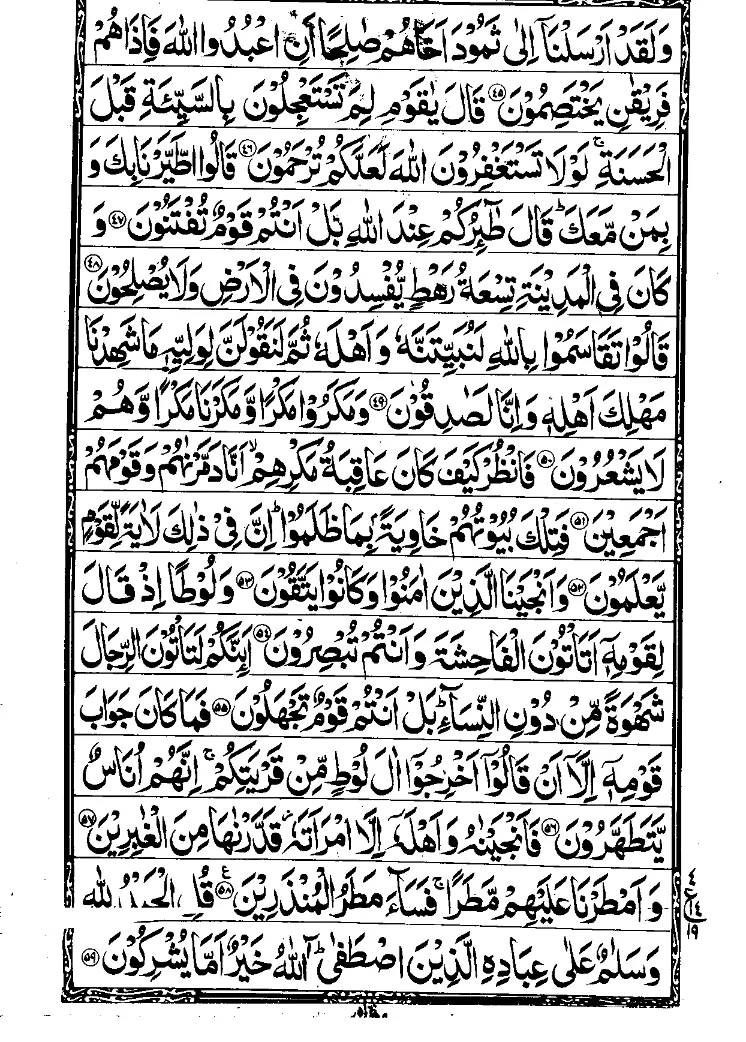 وَلَقَدْ اَرْسَلْنَاۤ اِلٰى ثَمُوْدَ اَخَاهُمْ صٰلِحًا اَنِ اعْبُدُوا اللّٰهَ فَاِذَا هُمْ
فَرِيْقٰنِ يَخْتَصِمُوْنَ ﴿۴۵﴾ قَالَ يٰقَوْمِ لِمَ تَسْتَعْجِلُوْنَ بِالسَّيِّئَةِ قَبْلَ
الْحَسَنَةِ ۚ لَوْلَا تَسْتَغْفِرُوْنَ اللّٰهَ لَعَلَّكُمْ تُرْحَمُوْنَ ﴿۴۶﴾ قَالُوا اطَّيَّرْنَا بِكَ وَ
بِمَنْ مَّعَكَ ؕ قَالَ طٰٓئِرُكُمْ عِنْدَ اللّٰهِ بَلْ اَنْتُمْ قَوْمٌ تُفْتَنُوْنَ ﴿۴۷﴾ وَ
كَانَ فِى الْمَدِيْنَةِ تِسْعَةُ رَهْطٍ يُّفْسِدُوْنَ فِى الْاَرْضِ وَلَا يُصْلِحُوْنَ ﴿۴۸﴾
قَالُوْا تَقَاسَمُوْا بِاللّٰهِ لَنُبَيِّتَنَّهٗ وَاَهْلَهٗ ثُمَّ لَنَقُوْلَنَّ لِوَلِيِّهٖ مَا شَهِدْنَا
مَهْلِكَ اَهْلِهٖ وَاِنَّا لَصٰدِقُوْنَ ﴿۴۹﴾ وَمَكَرُوْا مَكْرًا وَّمَكَرْنَا مَكْرًا وَّهُمْ
لَا يَشْعُرُوْنَ ﴿۵۰﴾ فَانْظُرْ كَيْفَ كَانَ عَاقِبَةُ مَكْرِهِمْ ۙ اَنَّا دَمَّرْنٰهُمْ وَقَوْمَهُمْ
اَجْمَعِيْنَ ﴿۵۱﴾ فَتِلْكَ بُيُوْتُهُمْ خَاوِيَةًۢ بِمَا ظَلَمُوْا ؕ اِنَّ فِىْ ذٰلِكَ لَاٰيَةً لِّقَوْمٍ
يَّعْلَمُوْنَ ﴿۵۲﴾ وَاَنْجَيْنَا الَّذِيْنَ اٰمَنُوْا وَكَانُوْا يَتَّقُوْنَ ﴿۵۳﴾ وَلُوْطًا اِذْ قَالَ
لِقَوْمِهٖۤ اَتَاْتُوْنَ الْفَاحِشَةَ وَاَنْتُمْ تُبْصِرُوْنَ ﴿۵۴﴾ اَئِنَّكُمْ لَتَاْتُوْنَ الرِّجَالَ
شَهْوَةً مِّنْ دُوْنِ النِّسَآءِ ؕ بَلْ اَنْتُمْ قَوْمٌ تَجْهَلُوْنَ ﴿۵۵﴾ فَمَا كَانَ جَوَابَ
قَوْمِهٖۤ اِلَّاۤ اَنْ قَالُوْۤا اَخْرِجُوْۤا اٰلَ لُوْطٍ مِّنْ قَرْيَتِكُمْ ۚ اِنَّهُمْ اُنَاسٌ
يَّتَطَهَّرُوْنَ ﴿۵۶﴾ فَاَنْجَيْنٰهُ وَاَهْلَهٗۤ اِلَّا امْرَاَتَهٗ ؗ قَدَّرْنٰهَا مِنَ الْغٰبِرِيْنَ ﴿۵۷﴾
وَاَمْطَرْنَا عَلَيْهِمْ مَّطَرًا ۚ فَسَآءَ مَطَرُ الْمُنْذَرِيْنَ ﴿۵۸﴾ ع قُلِ الْحَمْدُ لِلّٰهِ
وَسَلٰمٌ عَلٰى عِبَادِهِ الَّذِيْنَ اصْطَفٰى ؕ آٰللّٰهُ خَيْرٌ اَمَّا يُشْرِكُوْنَ ﴿۵۹﴾